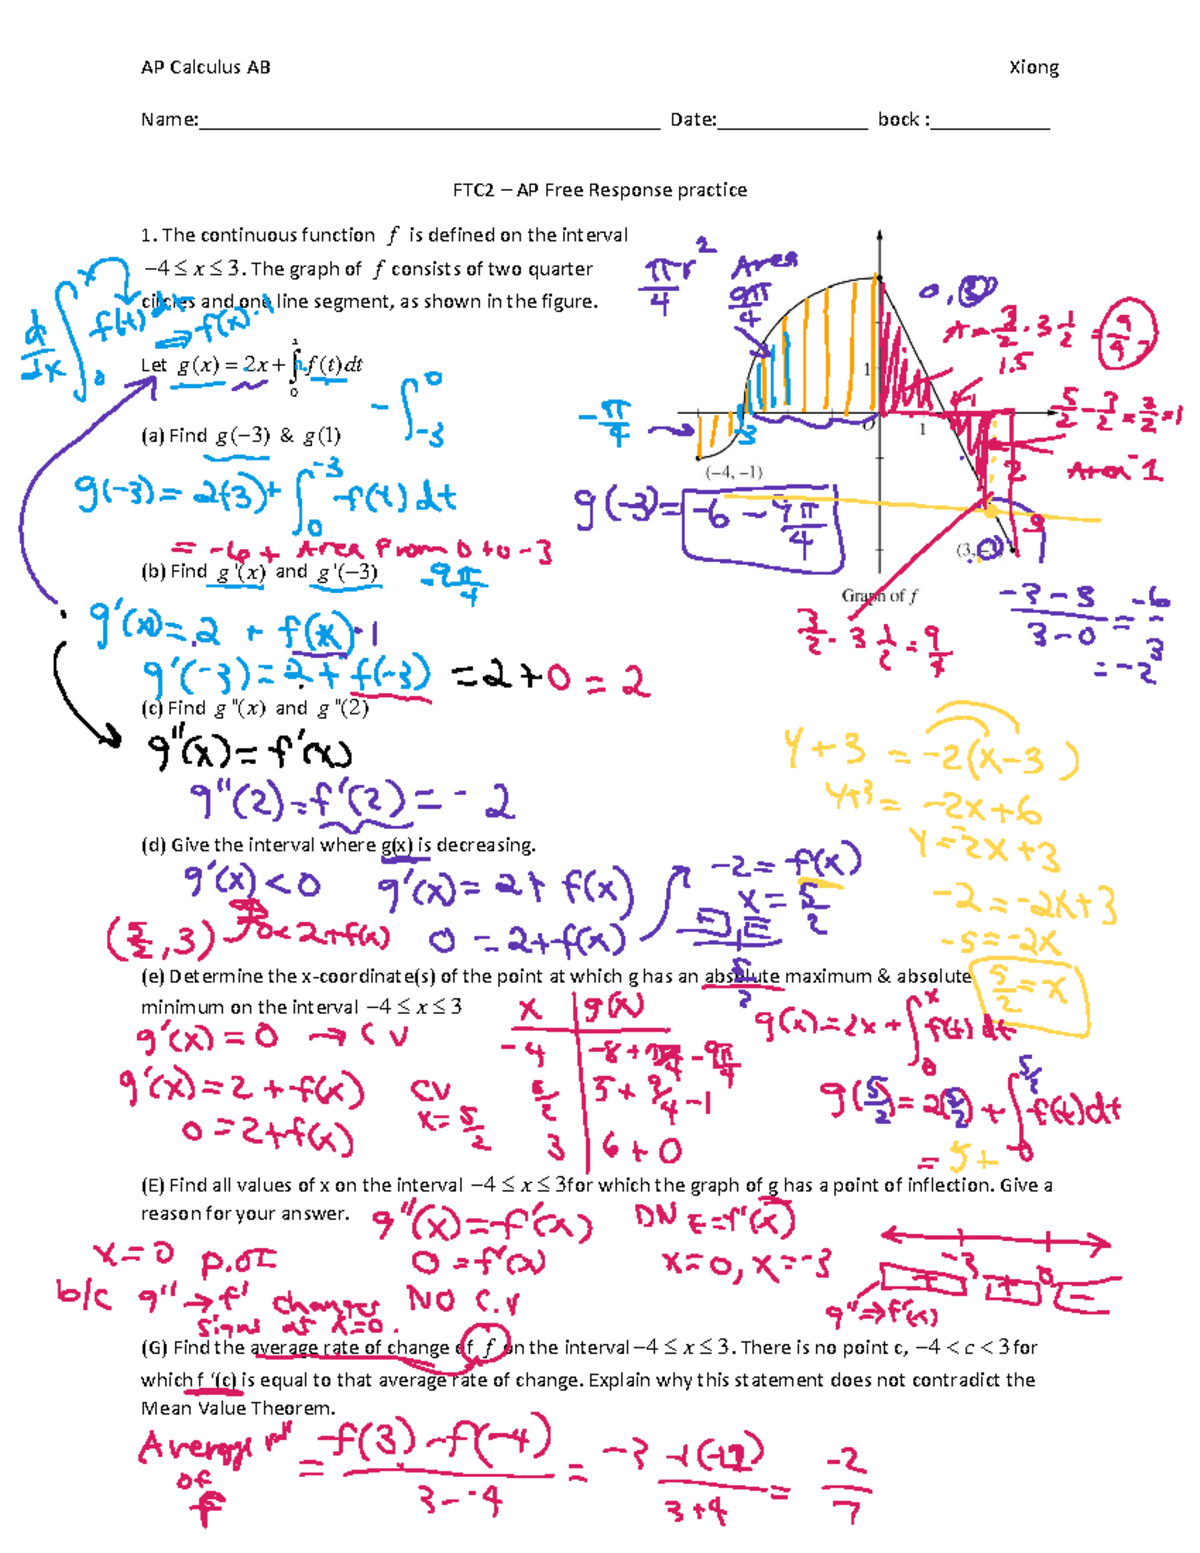 AP Calculus AB Xiong
Name: Date: bock :
FTC2 – AP Free Response practice
1. The continuous function f is defined on the interval
−4 ≤ x ≤ 3. The graph of f consists of two quarter
circles and one line segment, as shown in the figure.
Let g(x) = 2x + ∫₀ˣ f(t)dt
d/dx ∫₀ˣ f(t) dx ⇒ f(x)·1
πr²/4 Area 9π/4
0, 3
A = 3/2 · 3 1/2 = 9/4
1.5
5/2 − 3/2 = 2/2 = 1
Area −1
−π/4
1
O
1
−3
2
(−4, −1)
(3, −3)
Graph of f
(a) Find g(−3) & g(1)
− ∫₋₃⁰
g(−3) = 2(3) + ∫₀⁻³ f(t) dt
= −6 + Area from 0 to −3
−9π/4
g(−3) = −6 − 9π/4
3/2 · 3 1/2 = 9/4
−3 − 3 / 3 − 0 = −6/3
= −2
(b) Find g '(x) and g '(−3)
g'(x) = 2 + f(x)·1
g'(−3) = 2 + f(−3) = 2 + 0 = 2
(c) Find g "(x) and g "(2)
g"(x) = f'(x)
g"(2) = f'(2) = −2
y + 3 = −2(x − 3)
y + 3 = −2x + 6
y = −2x + 3
−2 = −2x + 3
−5 = −2x
5/2 = x
(d) Give the interval where g(x) is decreasing.
g'(x) < 0 g'(x) = 2 + f(x)
−2 = f(x)
x = 5/2
(5/2, 3) 0 < 2 + f(x) 0 = 2 + f(x)
5/2
(e) Determine the x-coordinate(s) of the point at which g has an absolute maximum & absolute
minimum on the interval −4 ≤ x ≤ 3
g'(x) = 0 → CV
g'(x) = 2 + f(x)
0 = 2 + f(x)
CV
x = 5/2
x g(x)
−4 −8 + − 9π/4
5/2 5 + 9/4 − 1
3 6 + 0
g(x) = 2x + ∫₀ˣ f(t) dt
g(5/2) = 2(5/2) + ∫₀^(5/2) f(t)dt
= 5 +
(E) Find all values of x on the interval −4 ≤ x ≤ 3for which the graph of g has a point of inflection. Give a
reason for your answer.
g"(x) = f'(x) DNE = f'(x)
x = 0 P.OI 0 = f'(x) x = 0, x = −3
b/c g" → f' changes NO C.V
signs at x=0.
−3 0
− + −
g" ⇒ f'(x)
(G) Find the average rate of change of f on the interval −4 ≤ x ≤ 3. There is no point c, −4 < c < 3 for
which f '(c) is equal to that average rate of change. Explain why this statement does not contradict the
Mean Value Theorem.
Average
of
f
= f(3) − f(−4) / 3 − −4 = / 3 + 4 = −2/7